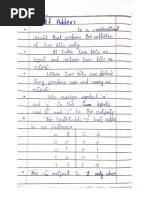 Half Adder:
Is a combinational
circuit that perform the addition
of two bits only.
It takes two bits as
input and return two bits as
output.
When two bits are added
they produce sum and carry as
output.
We assign symbol 'a'
and 'b' to the two inputs
and 'S' and 'C' to the outputs.
The truth table of half adder
is as follows:
a b C S
0 0 0 0
0 1 0 1
1 0 0 1
1 1 1 0
The C output is 1 only when